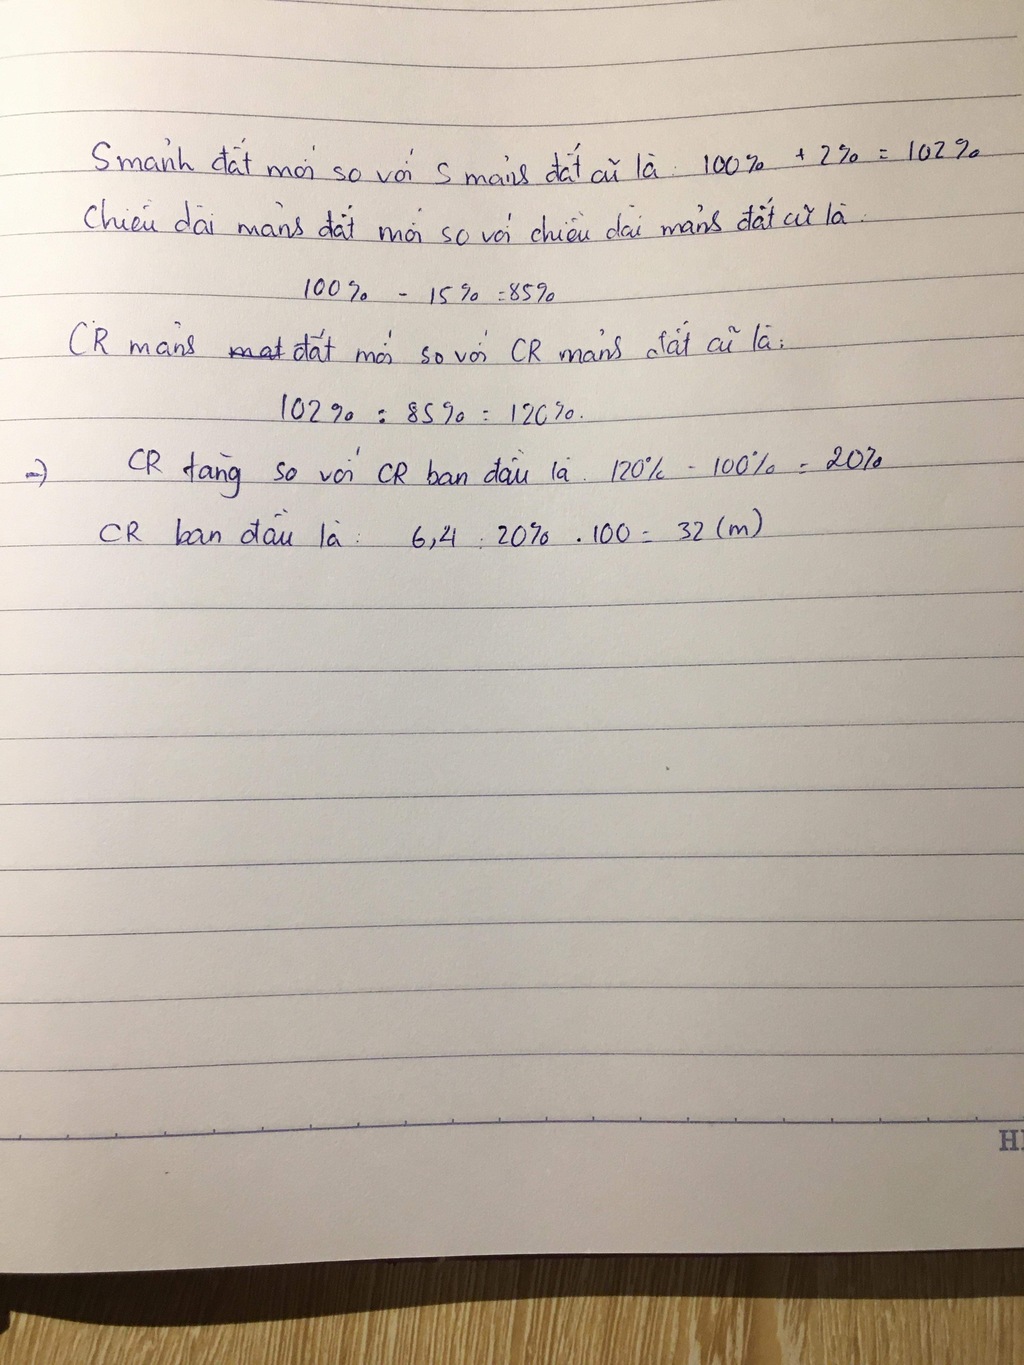 S mảnh đất mới so với S mảnh đất cũ là: 100% + 2% = 102%
Chiều dài mảnh đất mới so với chiều dài mảnh đất cũ là:
100% - 15% = 85%
CR mảnh đất mới so với CR mảnh đất cũ là:
102% : 85% = 120%.
=) CR tăng so với CR ban đầu là: 120% - 100% = 20%
CR ban đầu là: 6,4 : 20% . 100 = 32 (m)